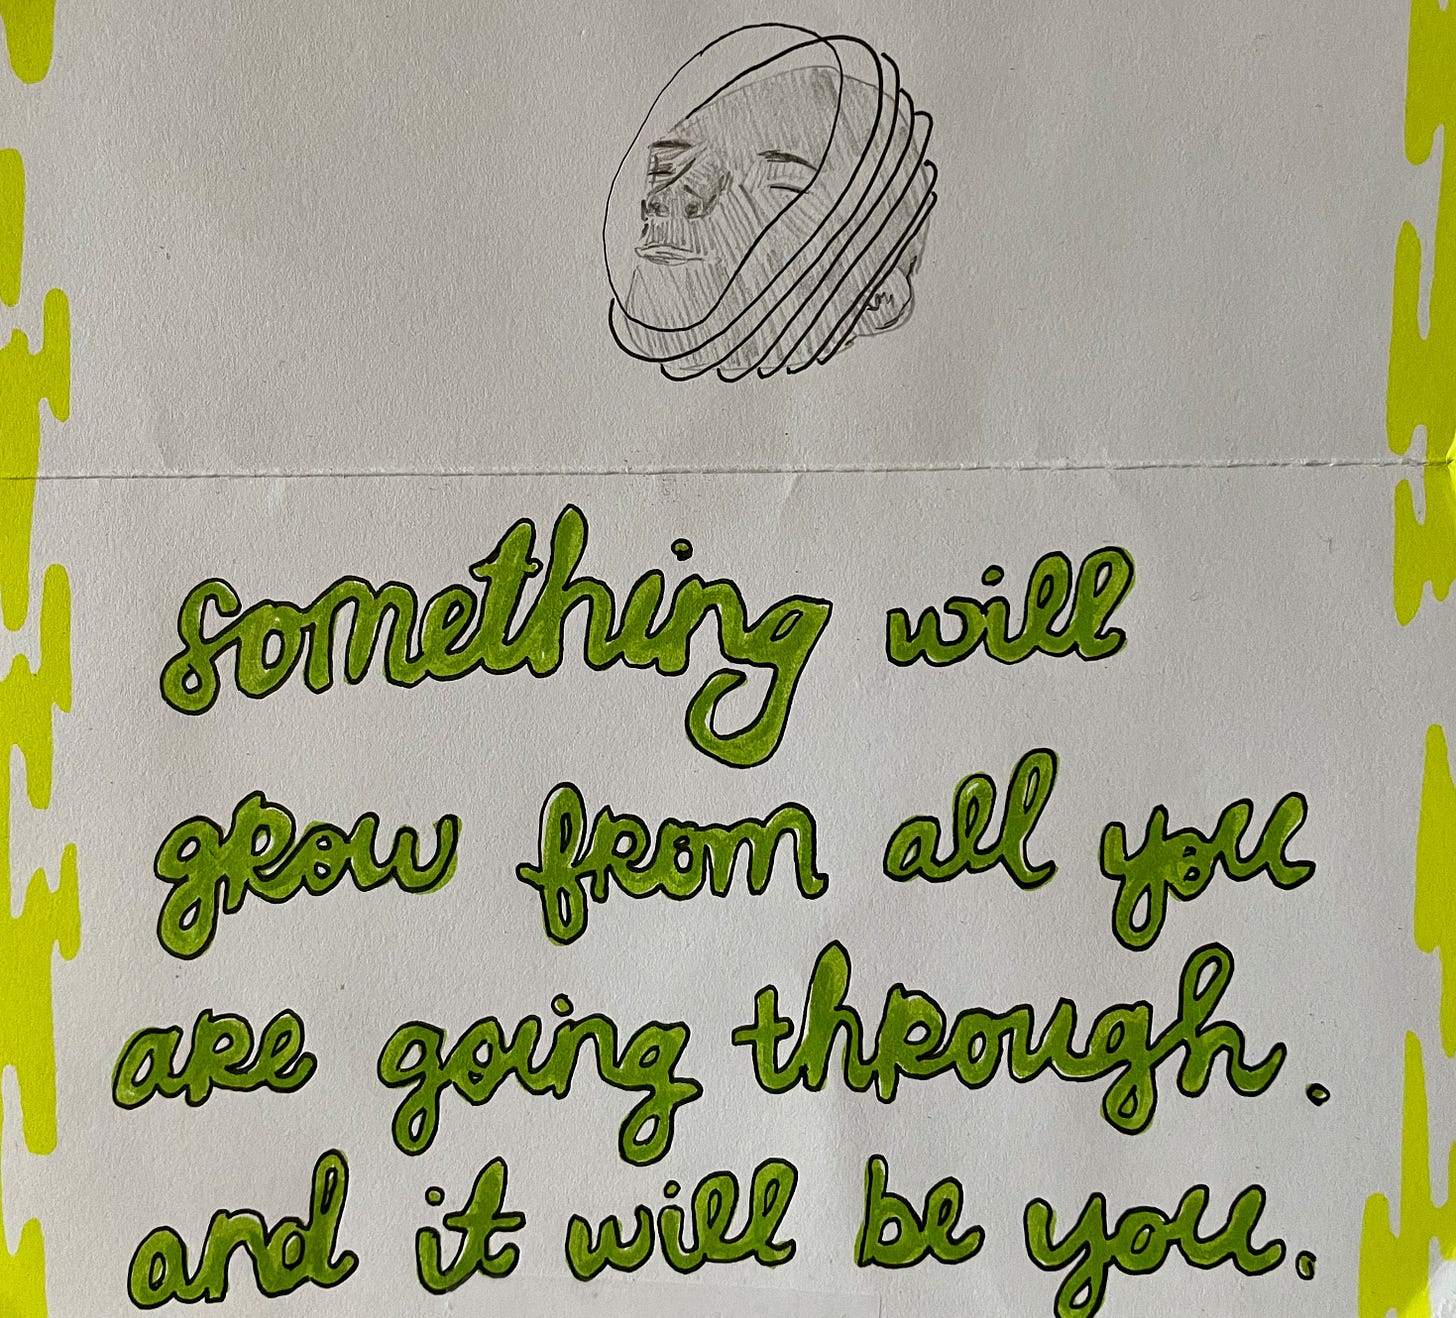 something will
grow from all you
are going through.
and it will be you.